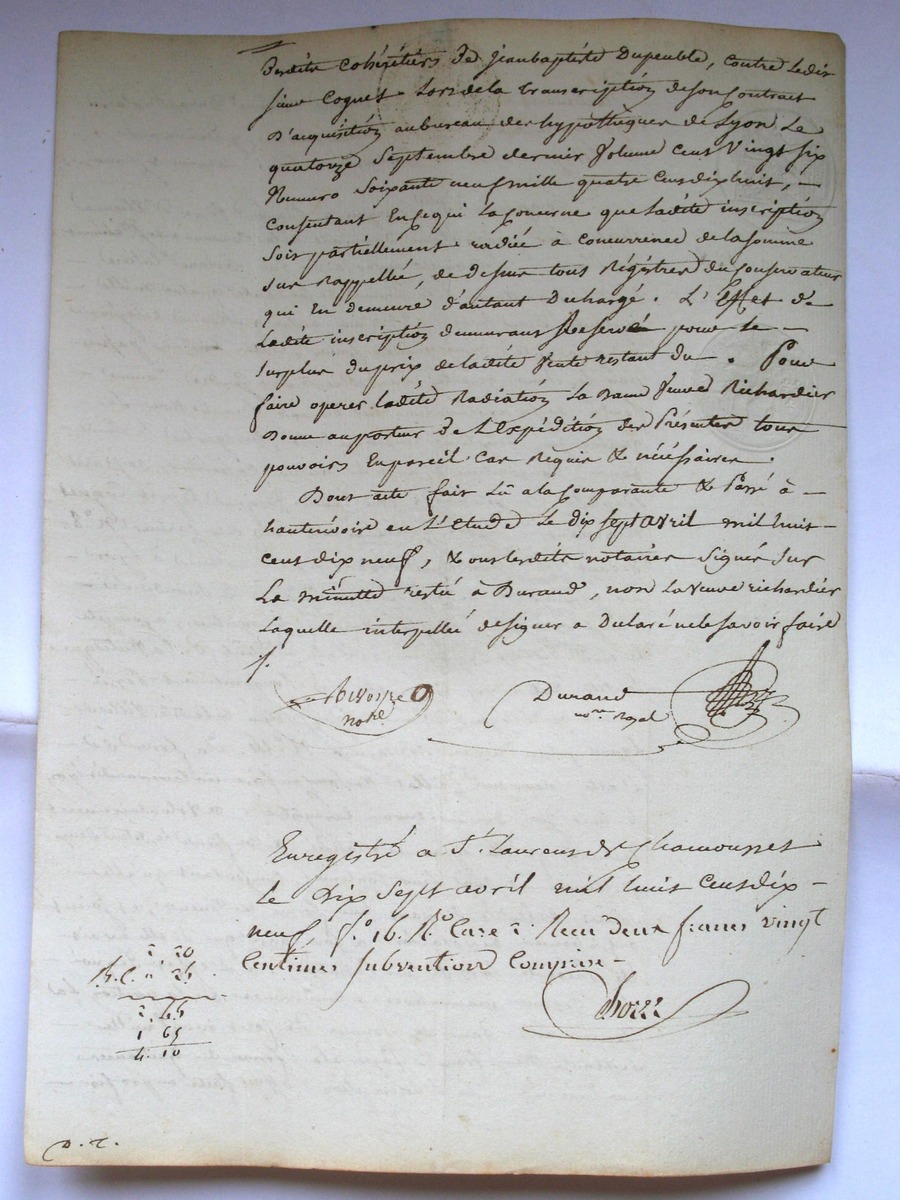 Cohéritiers de jeanbaptiste Dupeuble, contre ledit
sieur Coquet Lors de la transcription de son Contrat
D'acquisition au bureau des hypothèques de Lyon Le
quatorze Septembre dernier Volume cent Vingt six
Numero Soixante neuf mille quatre Cent dix huit, —
Consentant En ce qui la Concerne que ladite inscription
Soit partiellement radiée à Concurrence de la somme
sus Rappellée, de dessus tous Régistres du Conservateur
qui En demeure d'autant Déchargé. L'Effet de
Ladite inscription demeurant Reservé pour le —
Surplus du prix de ladite Vente restant du. Pour
faire operer ladite Radiation La Dame Veuve Richardier
Donne au porteur de L'Expédition des Présentes tous
pouvoirs En pareil cas Requis & nécéssaires.
Dont acte fait Lû a la Comparante & Passé à —
hauterivoire en L'Etude Le dix sept avril mil huit
cent dix neuf, & ont lesdits notaires Signés Sur
La minutte restée à Durand, non La Veuve richardier
Laquelle interpellée de signer a Déclaré ne le savoir faire
/.
notre
Durand
nore Royal
Enregistré a St. Laurent de Chamousset
le dix sept avril mil huit cent dix —
neuf, fo. 16. Ro. Case 2 Recu deux francs vingt
Centimes Subvention Comprise —
2, 20
2, 45
1 65
4. 10